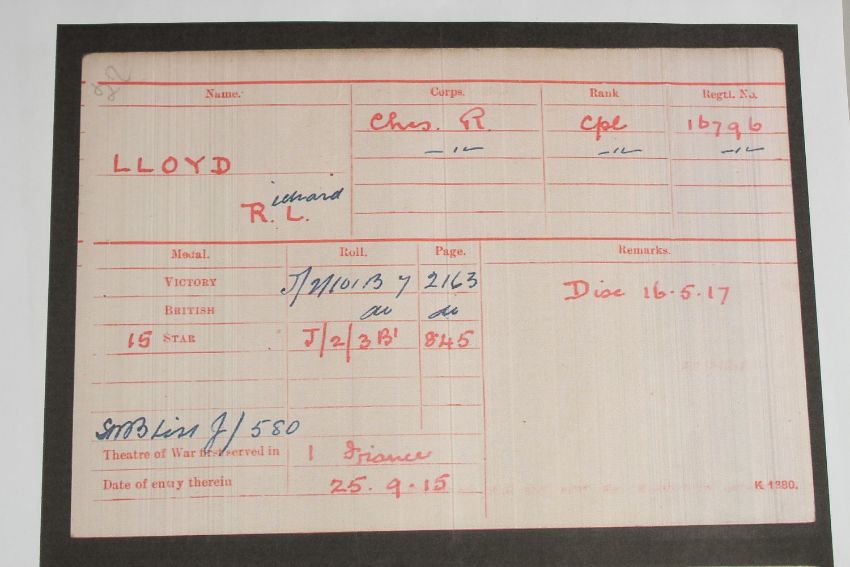 Name. Corps. Rank Regtl. No.
Ches. R. Cpl 16796
LLOYD —"— —"— —"—
Richard
R. L.
Medal. Roll. Page. Remarks.
VICTORY J/2/101B7 2163 Disc 16.5.17
BRITISH do do
15 STAR J/2/3B1 845
SWB List J/580
Theatre of War first served in 1 France
Date of entry therein 25.9.15
K 1380.